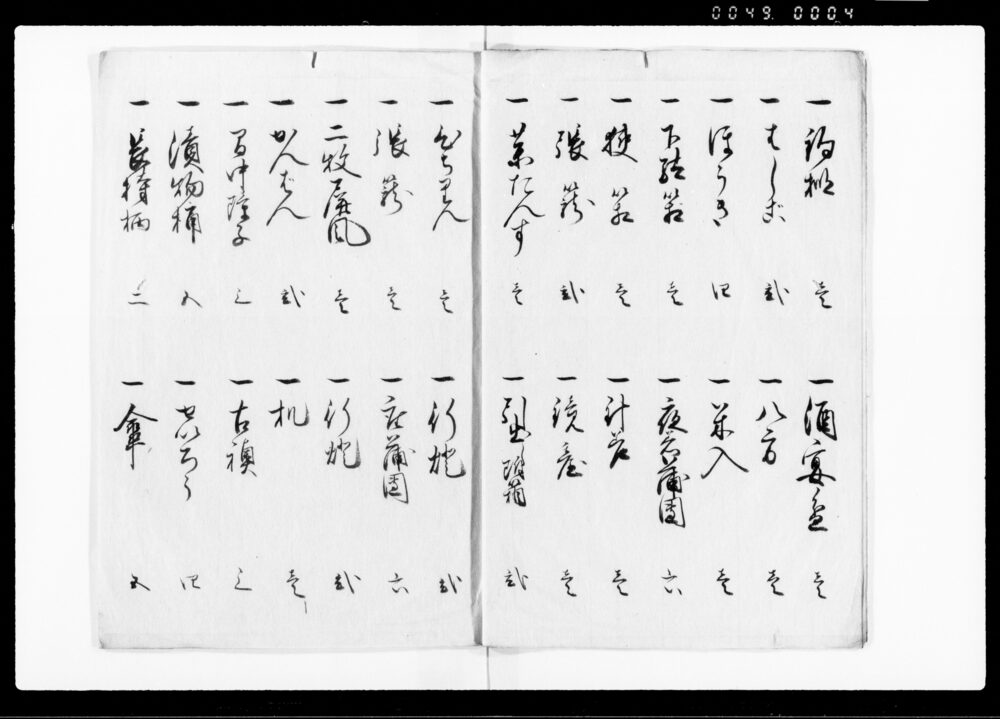 0049. 0004
一 釣枕 壱
一 はしご 弐
一 ほうき 四
一 下駄箱 壱
一 狭箱 壱
一 張籠 弐
一 茶たんす 壱
一 酒宴台 壱
一 八方 壱
一 米入 壱
一 夜着蒲団 六
一 針箱 壱
一 鏡台 壱
一 引出 弐
一 壱
一 張籠 壱
一 二牧屏風 壱
一 かんばん 弐
一 中障子 三
一 漬物桶 五
一 長持柄 二
一 行燈 弐
一 座蒲団 六
一 行燈 弐
一 机 壱
一 古襖 三
一 せいろう 四
一 傘 五